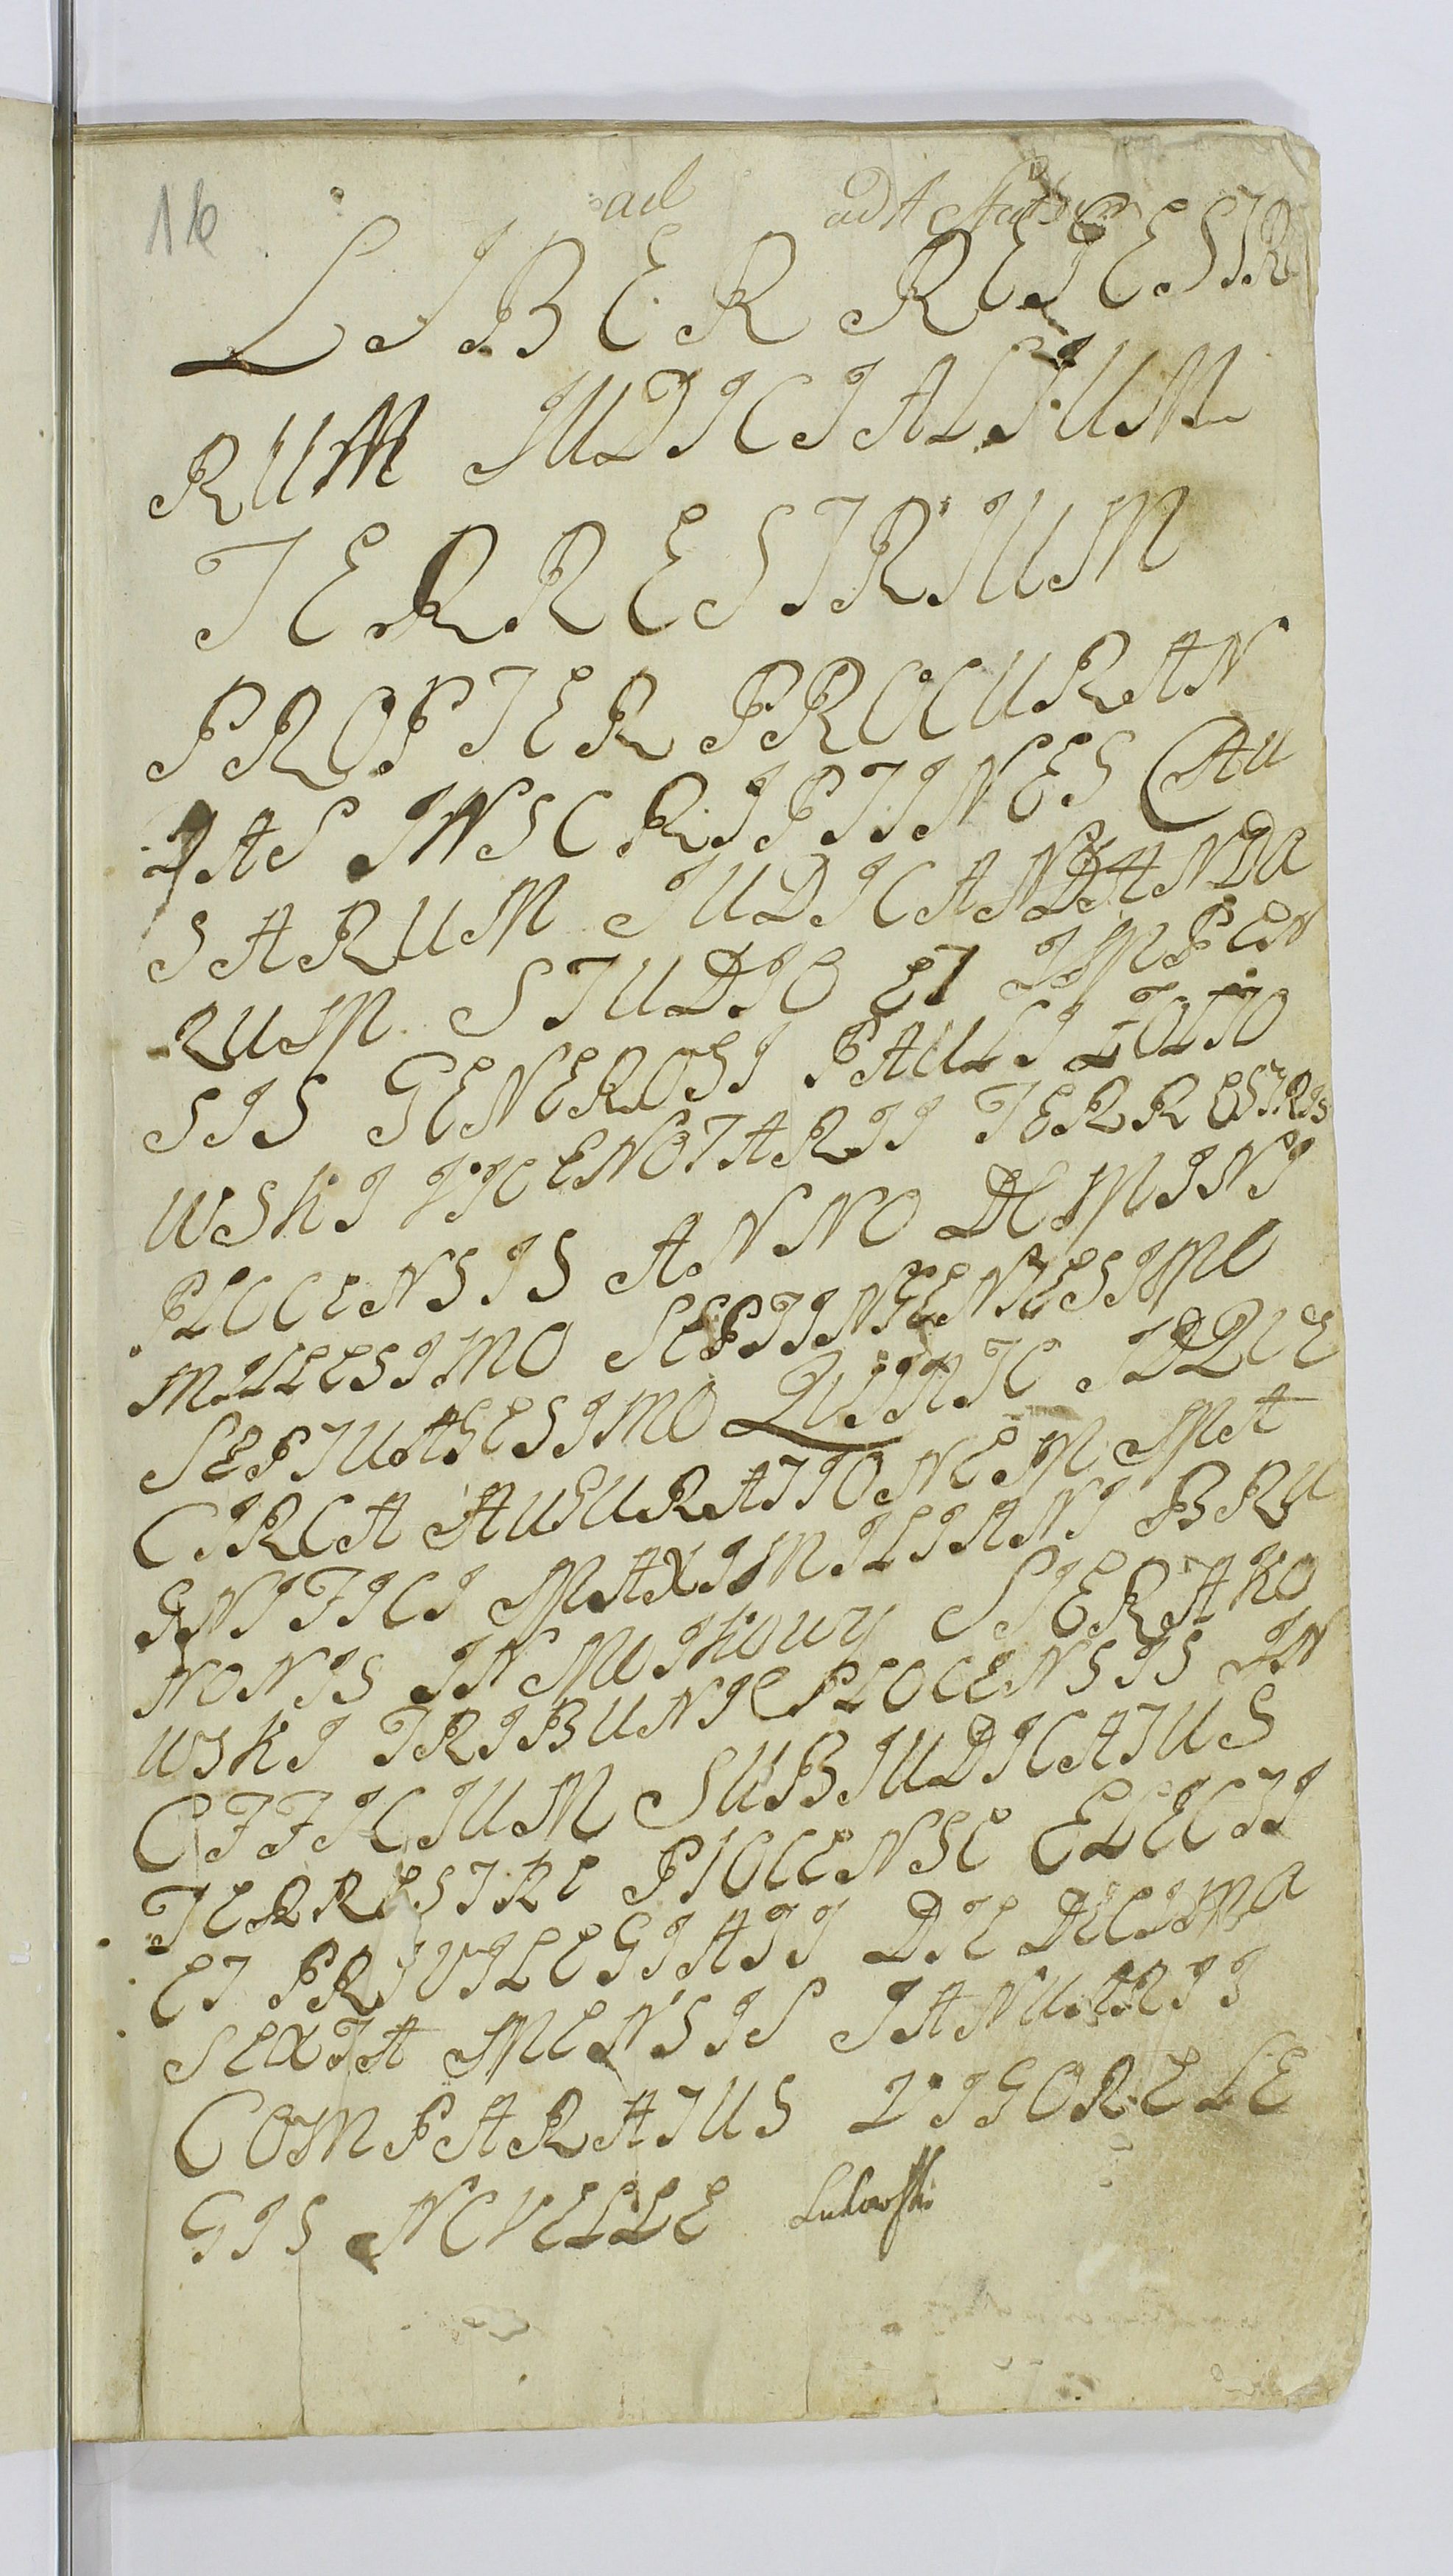 16
ad ad
LIBER REGESTR
RUM JUDICIALIUM
TERRESTRIUM
PROPTER PROCURAN
DAS INSCRIPTINES CAU
SARUM JUDICANDANDA
RUM STUDIO ET IMPEN
SIS GENEROSI PAULI ZOLTO
WSKI VICENOTARII TERRESTRIS
PLOCENSIS ANNO DOMINI
MILLESIMO SEPTINGENTESIMO
SEPTUAGESIMO QUINTO IDQUE
CIRCA AUGURATIONEM MA
GNIFICI MAXIMILIANI BRU
NONIS IN SIERAKO
WSKI TRIBUNI PLOCENSIS IN
OFFICIUM SUBJUDICATUS
TERRESTRE PLOCENSE ELECTI
ET PRIVILEGIATI DIE DECIMA
SEXTA MENSIS JANUARII
COMPARATUS VIGORE LE
GIS NOVELLE